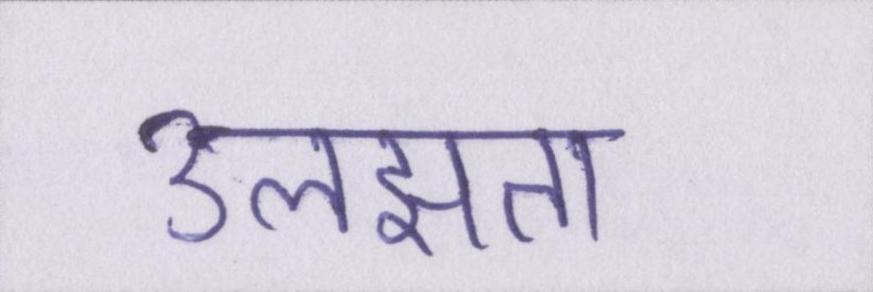 उलझता